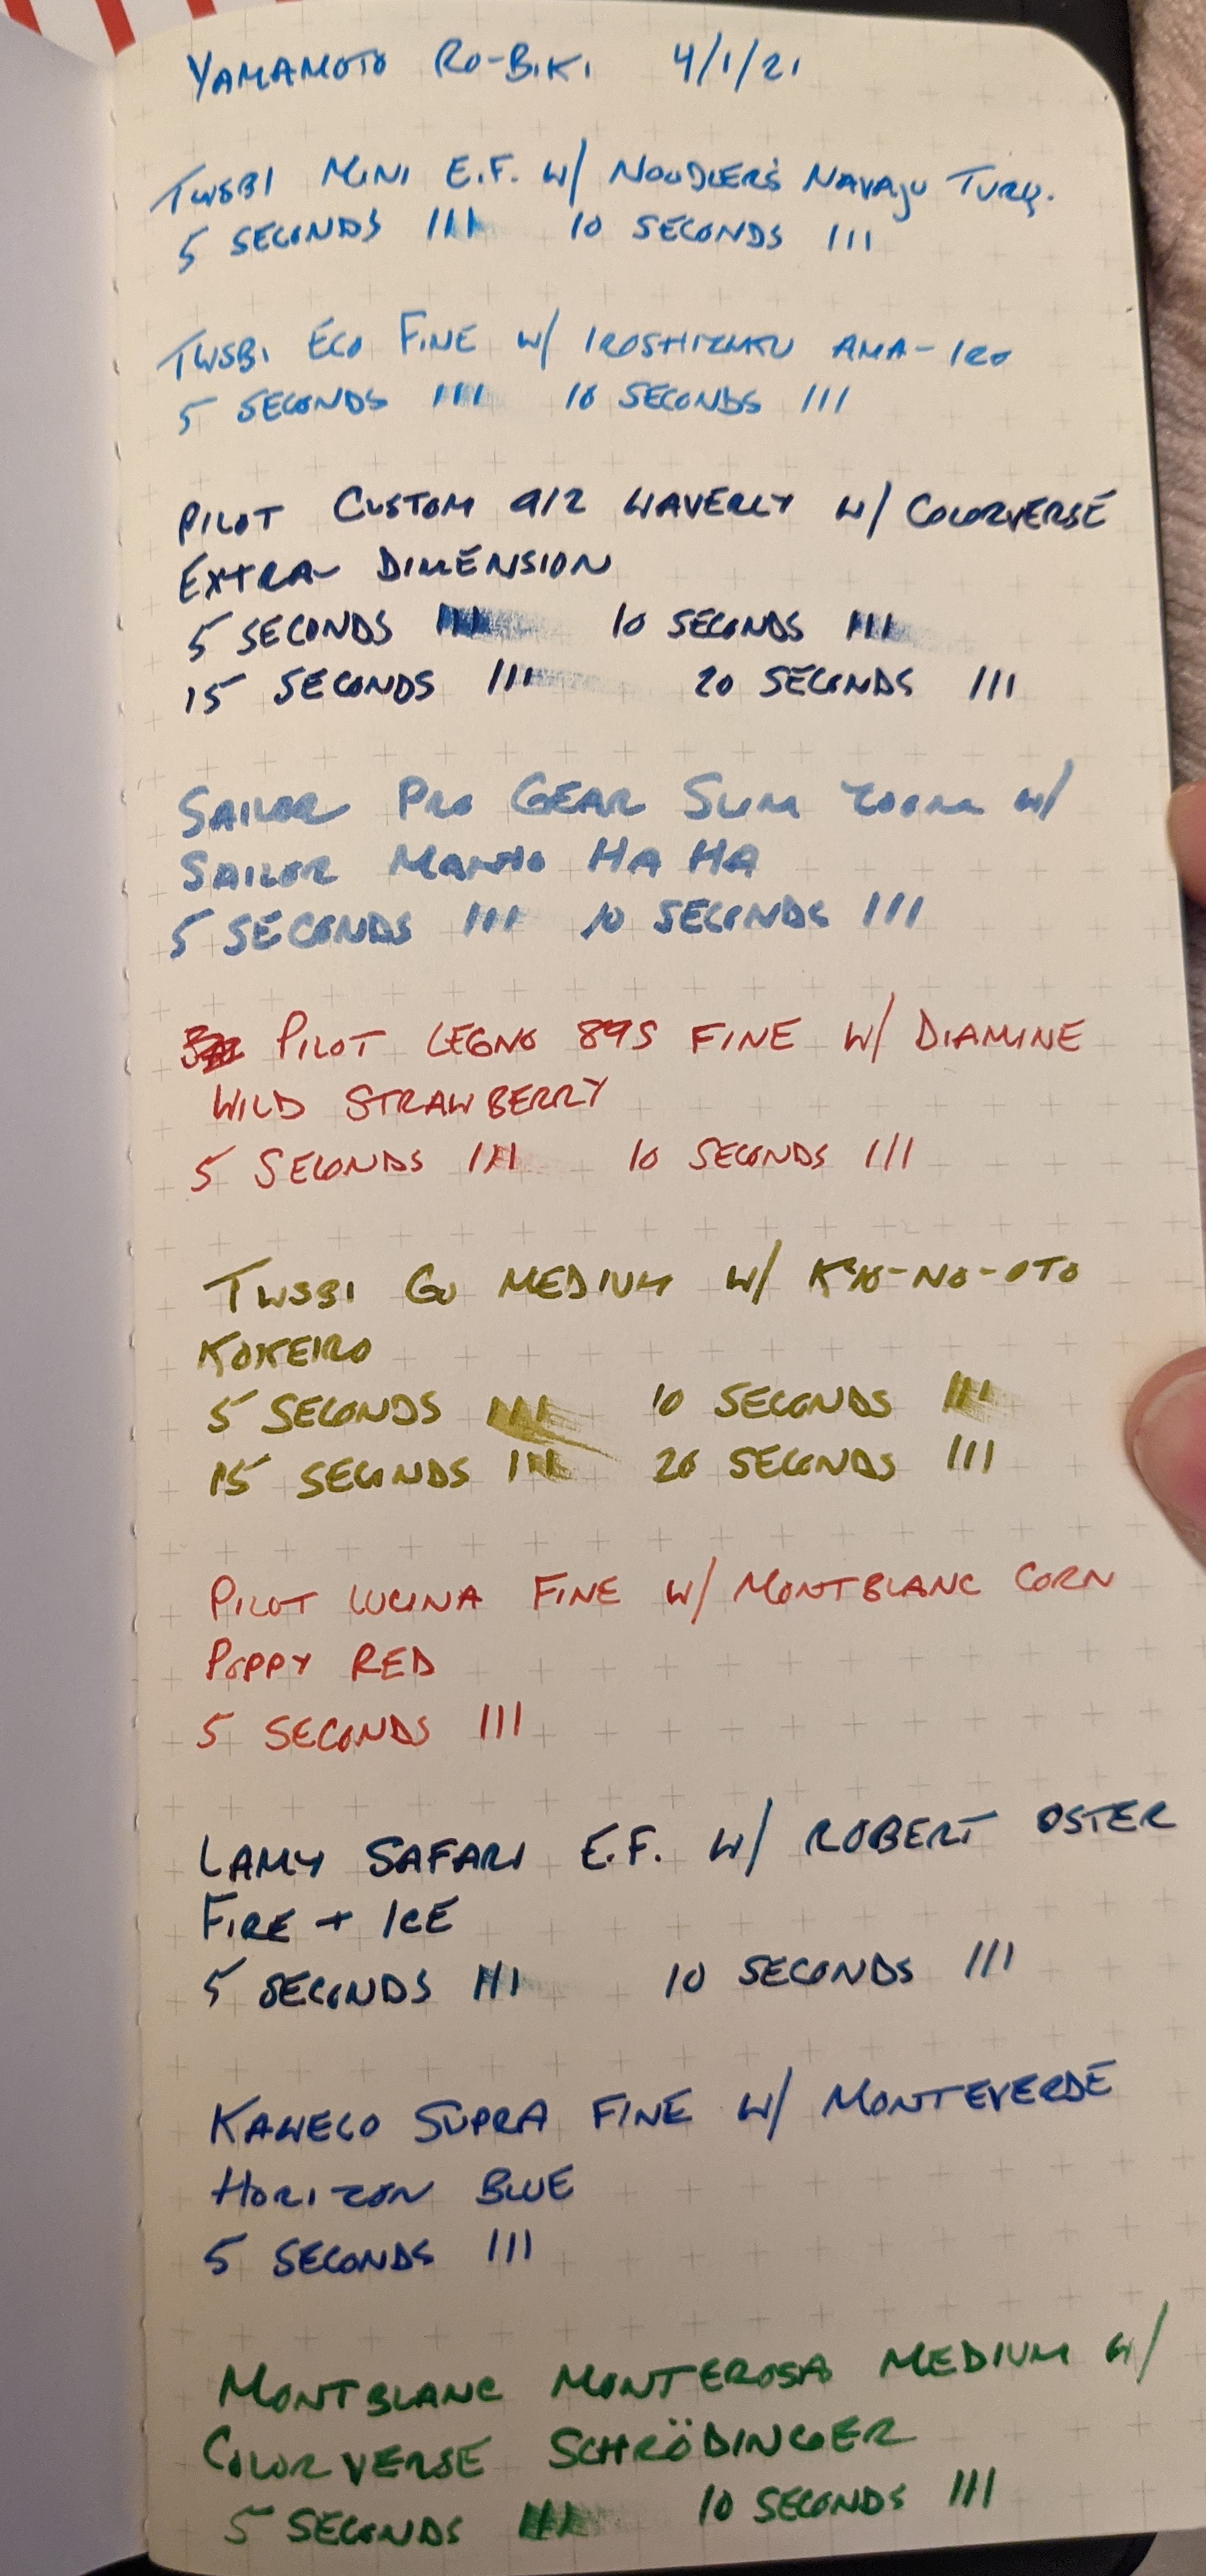 YAMAMOTO RO-BIKI 4/1/21
TWSBI MINI E.F. W/ NOODLER'S NAVAJO TURQ.
5 SECONDS III 10 SECONDS III
TWSBI ECO FINE W/ IROSHIZUKU AMA-IRO
5 SECONDS III 10 SECONDS III
PILOT CUSTOM 912 WAVERLY W/ COLORVERSE
EXTRA DIMENSION
5 SECONDS III 10 SECONDS III
15 SECONDS III 20 SECONDS III
SAILOR PRO GEAR SLIM ZOOM W/
SAILOR MANYO HA HA
5 SECONDS III 10 SECONDS III
PILOT LEGNO 89S FINE W/ DIAMINE
WILD STRAWBERRY
5 SECONDS III 10 SECONDS III
TWSBI GO MEDIUM W/ KYO-NO-OTO
KOKEIRO
5 SECONDS III 10 SECONDS III
15 SECONDS III 20 SECONDS III
PILOT LUCINA FINE W/ MONTBLANC CORN
POPPY RED
5 SECONDS III
LAMY SAFARI E.F. W/ ROBERT OSTER
FIRE + ICE
5 SECONDS III 10 SECONDS III
KAWECO SUPRA FINE W/ MONTEVERDE
HORIZON BLUE
5 SECONDS III
MONTBLANC MONTEROSA MEDIUM W/
COLORVERSE SCHRÖDINGER
5 SECONDS III 10 SECONDS III